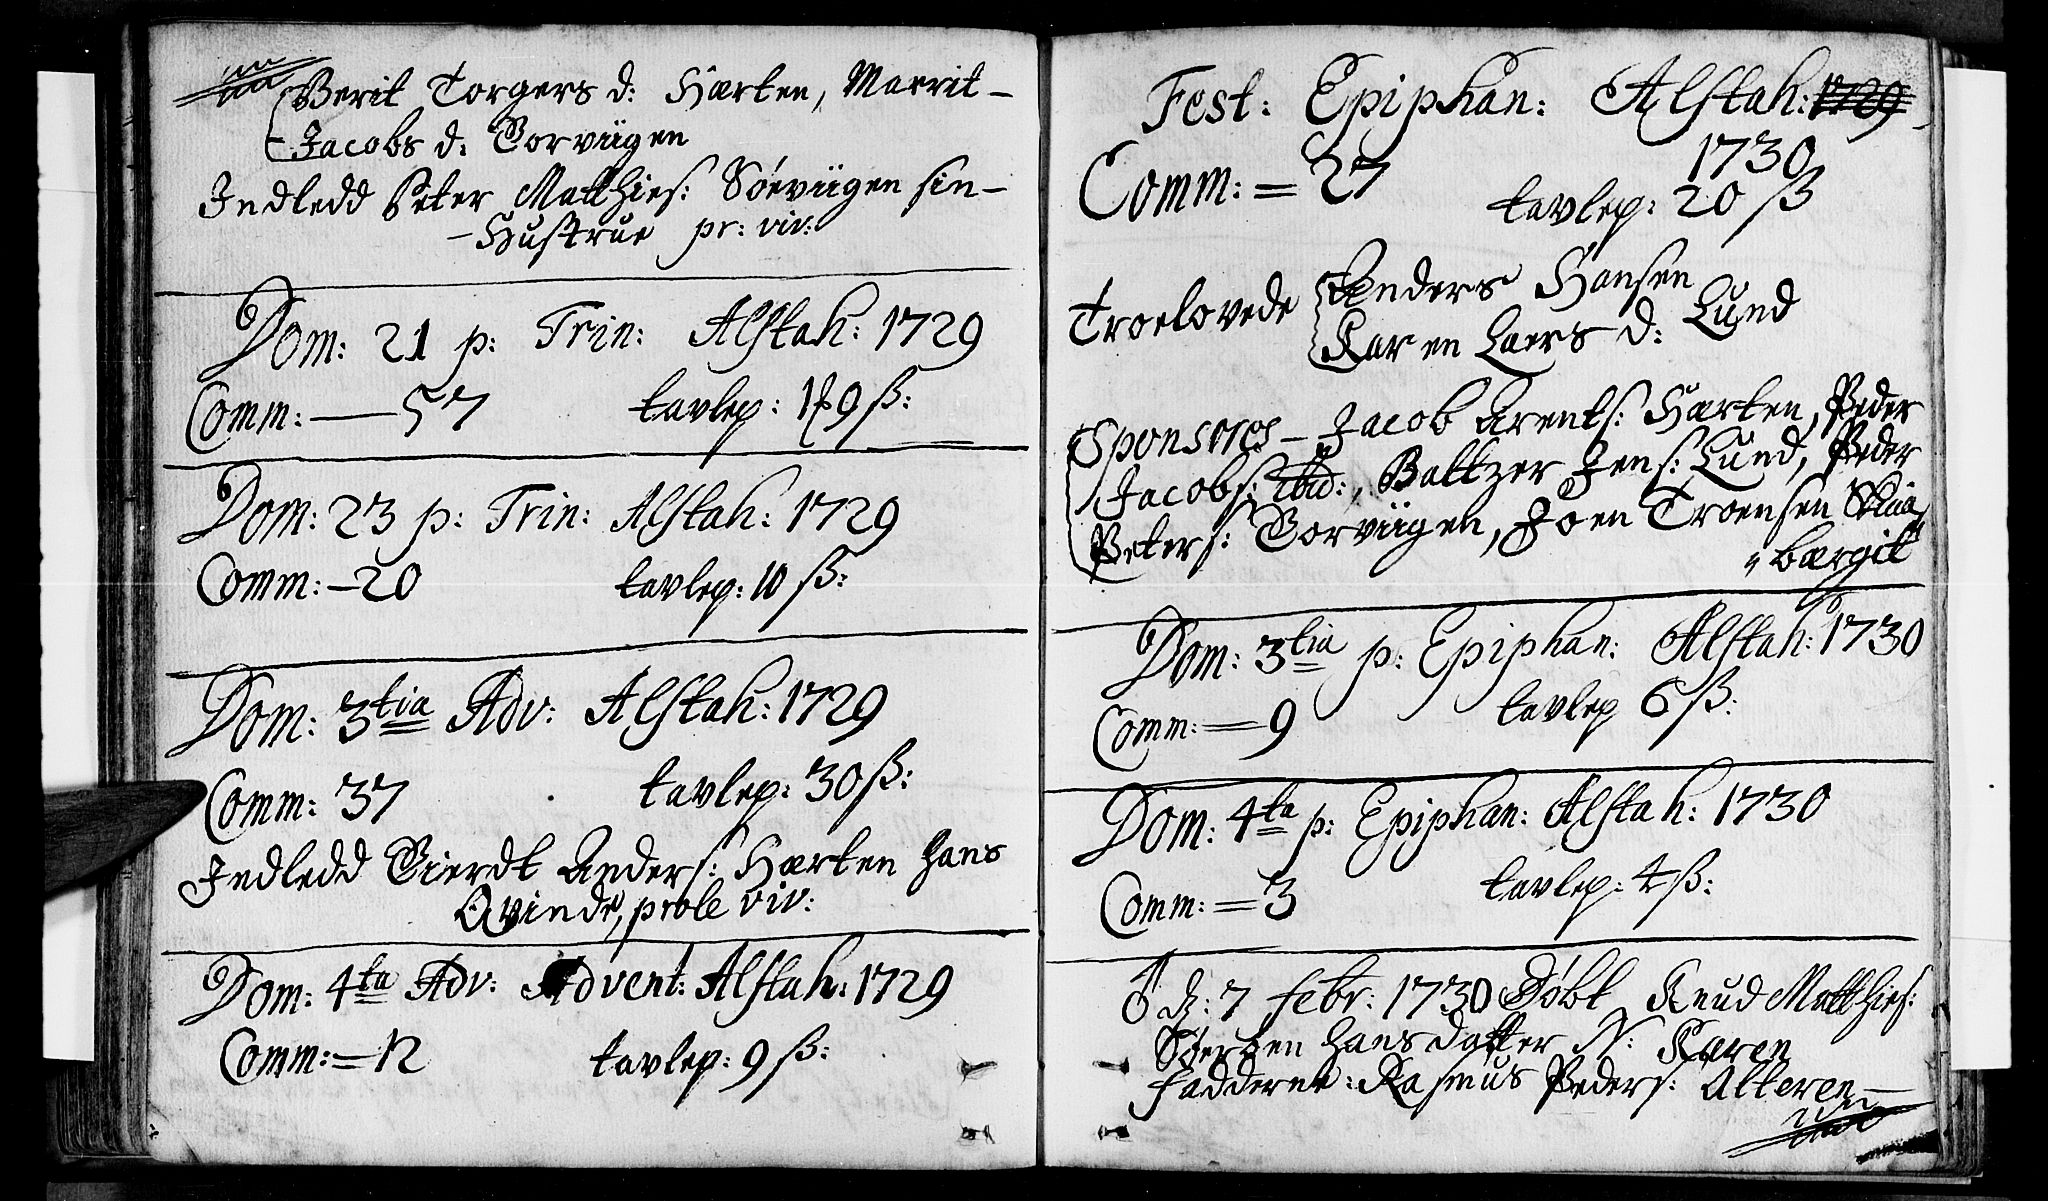 Berit Torgers d: Hærten, Marrit-
-Jacobs d: Torviigen
Indledd Peter Matthies: Søeviigen sin-
-Hustrue pr: viv:
Dom: 21 p: Trin: Alstah: 1729
Comm: — 57 tavlep: 9 ß:
Dom: 23 p: Trin: Alstah: 1729
Comm: -20 tavlep: 10 ß:
Dom: 3tia Adv: Alstah: 1729
Comm: 37 tavlep: 30 ß:
Indledd Sierdt Anders: Hærten hans
Qvinde, prole viv:
Dom: 4ta Adv: Advent: Alstah: 1729
Comm: = 12 tavlep: 9 ß:
Fest: Epiphan: Alstah: 1729
1730
Comm: = 27 tavlep: 20 ß
Troelovede Anders Hansen
Karen Laers d: Lund
Sponsores - Jacob Arents: Hærten, Peder
Jacobs: ibid:, Baltzer Jens: Lund, Peder
Peters: Torviigen, Joen Troensen Skaa
"bærgit
Dom: 3tia p: Epiphan: Alstah: 1730
Comm: = 9 tavlep 6 ß:
Dom: 4ta p: Epiphan: Alstah: 1730
Comm: = 3 tavlep: 4 ß:
d: 7 febr: 1730 Døbt Knud Matthies:
Søeren hans datter N: Karen
fadderne: Rasmus Peders: Alteren-